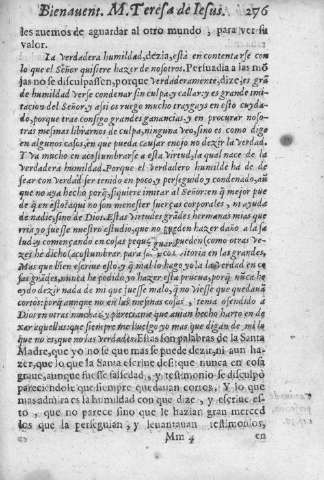 Bienauent. M. Teresa de Iesus. 276
les auemos de aguardar al otro mundo, para ver su
valor.
La verdadera humildad, dezia, està en contentarse con
lo que el Señor quisiere hazer de nosotros. Persuadia a las mõ
jas no se disculpassen, porque verdaderamente, dize, es grã
de humildad verse condenar sin culpa, y callar: y es grande imi-
tacion del Señor, y assi os ruego mucho traygays en esto cuyda-
do, porque tras consigo grandes ganancias, y en procurar noso-
tras mesmas librarnos de culpa, ninguna veo, sino es como digo
en algunos casos, en que pueda causar enojo no dezir la verdad.
Y va mucho en acostumbrarse a esta virtud, la qual nace de la
verdadera humildad. Porque el verdadero humilde ha de de-
sear con verdad ser tenido en poco, y perseguido y condenado, aũ
que no aya hecho porq̃, si quiere imitar al Señor: en q̃ mejor pue
de q̃ en esto? aqui no son menester fuerças corporales, ni ayuda
de nadie, sino de Dios. Estas virtudes grãdes hermanas mias que
rria yo fuesse nuestro estudio, que no pueden hazer daño a la sa
lud, y començando en cosas pequeñas pueden (como otras ve-
zes he dicho) acostumbrar para salir con vitoria en las grandes,
Mas que bien escriuo esto, y q̃ mal lo hago yo! a la verdad en co
sas grãdes, nunca he podido yo hazer esta prueua, porq̃ nũca he
oydo dezir nada de mi que fuesse malo, q̃ no viesse que quedauã
cortos: porq̃ aunque no en las mesmas cosas, tenia ofendido a
Dios en otras muchas, y pareciame que auian hecho harto en de
xar aquellas: que siempre me huelgo yo mas que digan de mi lo
que no es, que no las verdades. Estas son palabras de la Santa
Madre, que yo no se que mas se puede dezir, ni aun ha-
zer, que lo que la Santa escriue de si: que nunca en cosa
graue, aunque fuesse falsedad, y testimonio se disculpò
pareciendole que siempre quedauan cortos. Y lo que
mas admira es la humildad con que dize, y escriue es-
to, que no parece sino que le hazian gran merced
los que la perseguian, y leuantauan testimonios,
Mm 4 en